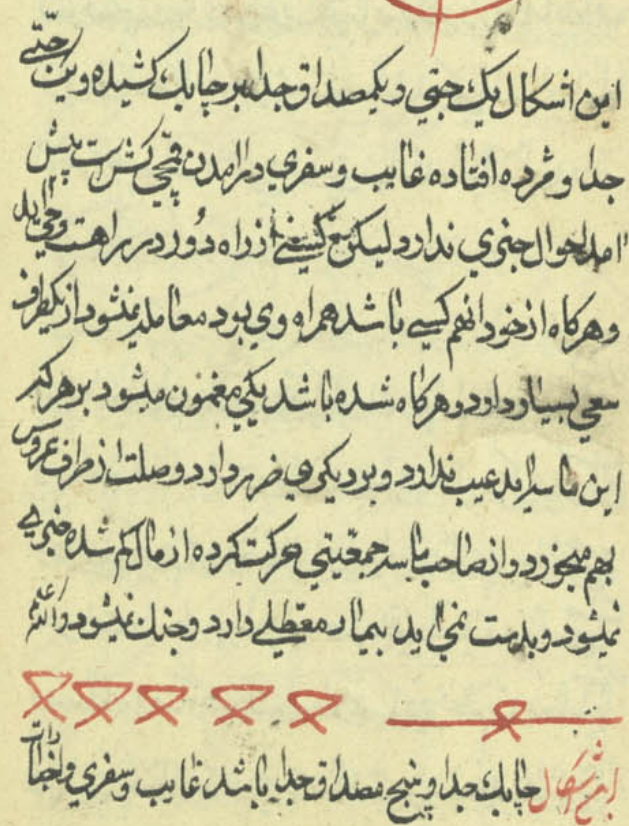 این اشکال یک جتی و یکمصداق جدا بر چابک کشیده و یک جتی
جدا و مرده افتاده غایب و سفری درامدن قمچی کثرت پیش
امد احوال خبری ندارد لیکن کسی از راه دور در راهت و می اید
و هرکاه از خود انهم کسی باشد همراه وی بود معامله نمیشود از یکطرف
سعی بسیار دارد و هرکاه شده باشد یکی مغمون میشود بر هر که
این ماسه امد عیب ندارد و بر دیکری ضرر دارد و وصلت از طرف عروس
بهم میخورد و از صاحب جمعیتی حرکت کرده از مال کم شده خبری
نمیشود و بدست نمی اید بیمار معطلی دارد و جنک نمیشود والله
این اشکال چابک جدا و پنج مصداق جدا باشد غایب و سفری و